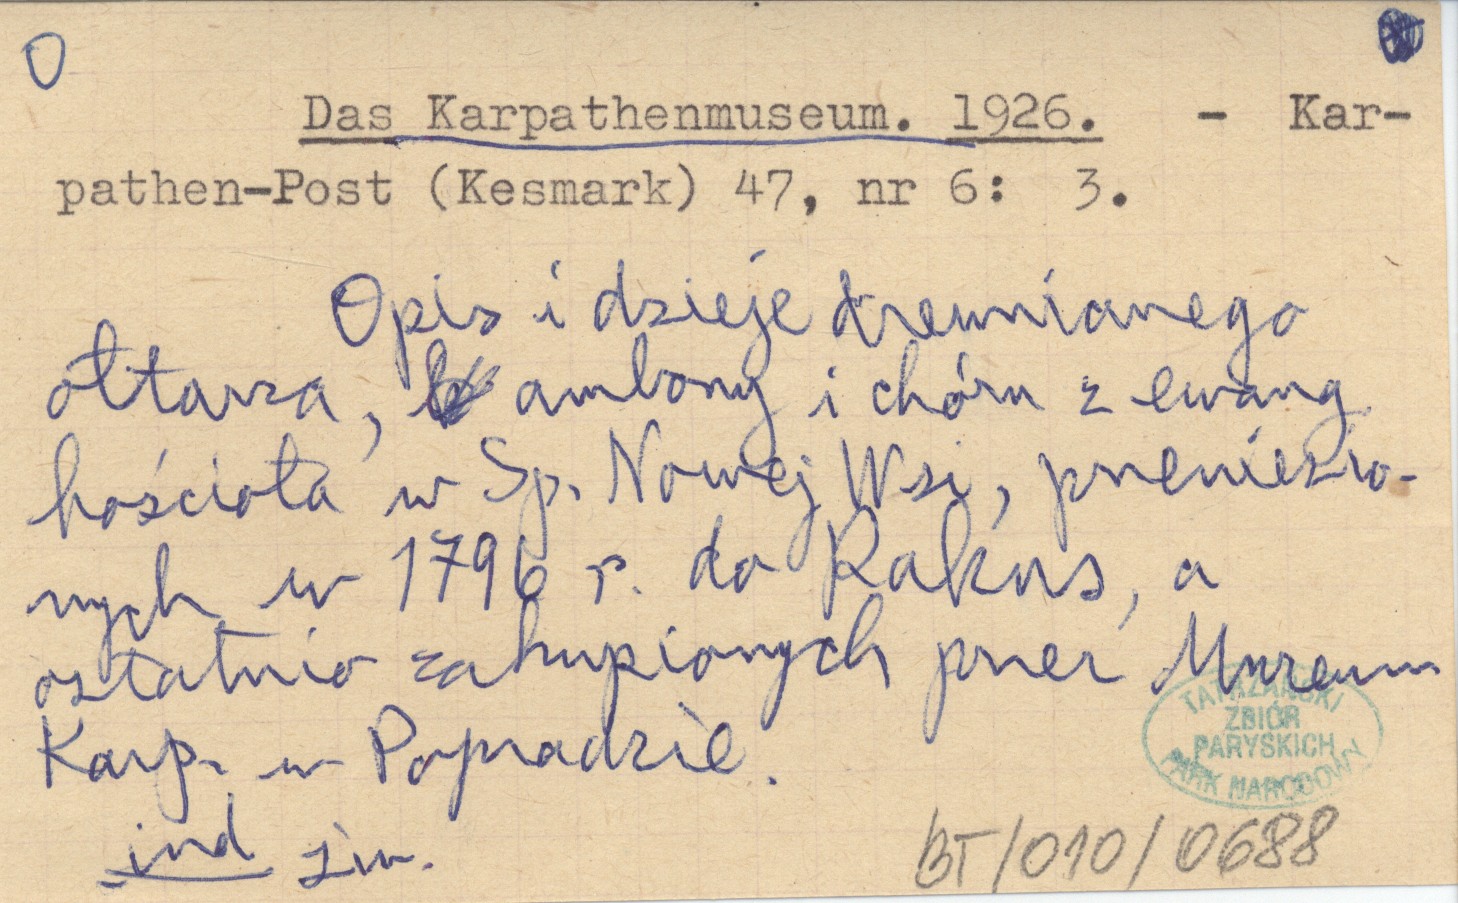 O
Das Karpathenmuseum. 1926. - Kar-
pathen-Post (Kesmark) 47, nr 6: 3.
Opis i dzieje drewnianego
ołtarza, ambony i chóru z ewang
kościoła w Sp. Nowej Wsi, przeniesio-
nych w 1796 r. do Rakus, a
ostatnio zakupionych przez Muzeum
Karp. w Popradzie.
ind
TATRZAŃSKI
ZBIÓR
PARYSKICH
PARK NARODOWY
BT/010/0688